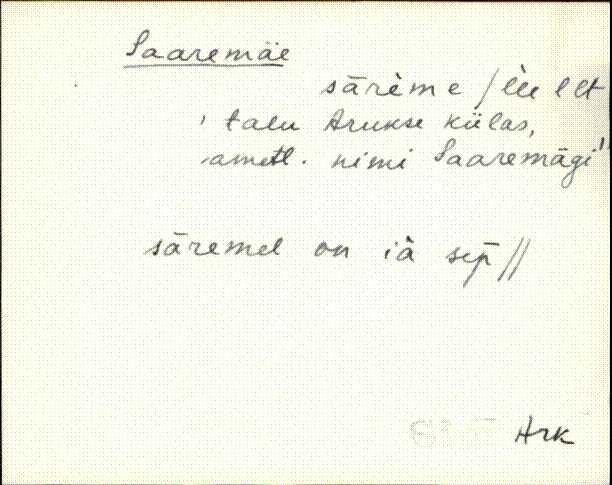 Saaremäe
särème / lèe l lt
' talu Arukse külas,
ametl. nimi Saaremägi'
säremel on iä sep̄ //
Ark